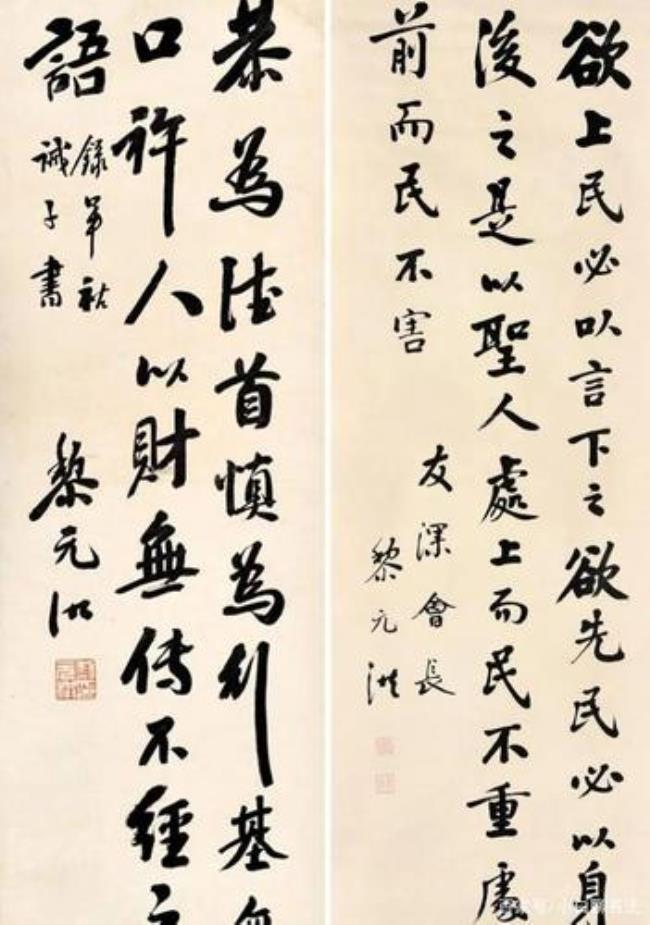 欲上民必以言下之欲先民必以身
後之是以聖人處上而民不重處
前而民不害
友深會長
黎元洪
恭為德首慎為行基無
口許人以財無傳不經之
語
錄羊祜
誡子書
黎元洪